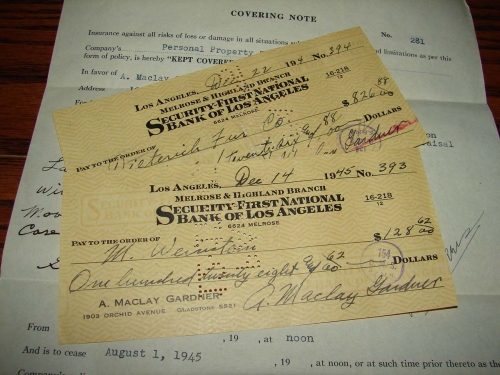 COVERING NOTE
Insurance against all risks of loss or damage in all situations
No. 281
Company's Personal Property
and limitations as per this
form of policy, is hereby "KEPT COVERED
In favor of A. Maclay
Address
Los Angeles, Dec 22 194 No. 394
MELROSE & HIGHLAND BRANCH
SECURITY-FIRST NATIONAL
BANK OF LOS ANGELES
6624 MELROSE
16-218
12
PAY TO THE ORDER OF Dieterich Fur Co. $826 88
00
DOLLARS
Gardner
Los Angeles, Dec 14 1945 No. 393
MELROSE & HIGHLAND BRANCH
SECURITY-FIRST NATIONAL
BANK OF LOS ANGELES
6624 MELROSE
16-218
12
PAY TO THE ORDER OF M. Weinstein $128 62
00
One hundred twenty eight & 62
00
DOLLARS
A. MACLAY GARDNER
1903 ORCHID AVENUE GLADSTONE 5851
A. Maclay Gardner
From , 19 , at noon
And is to cease August 1, 1945 , 19 , at noon, or at such time prior thereto as the